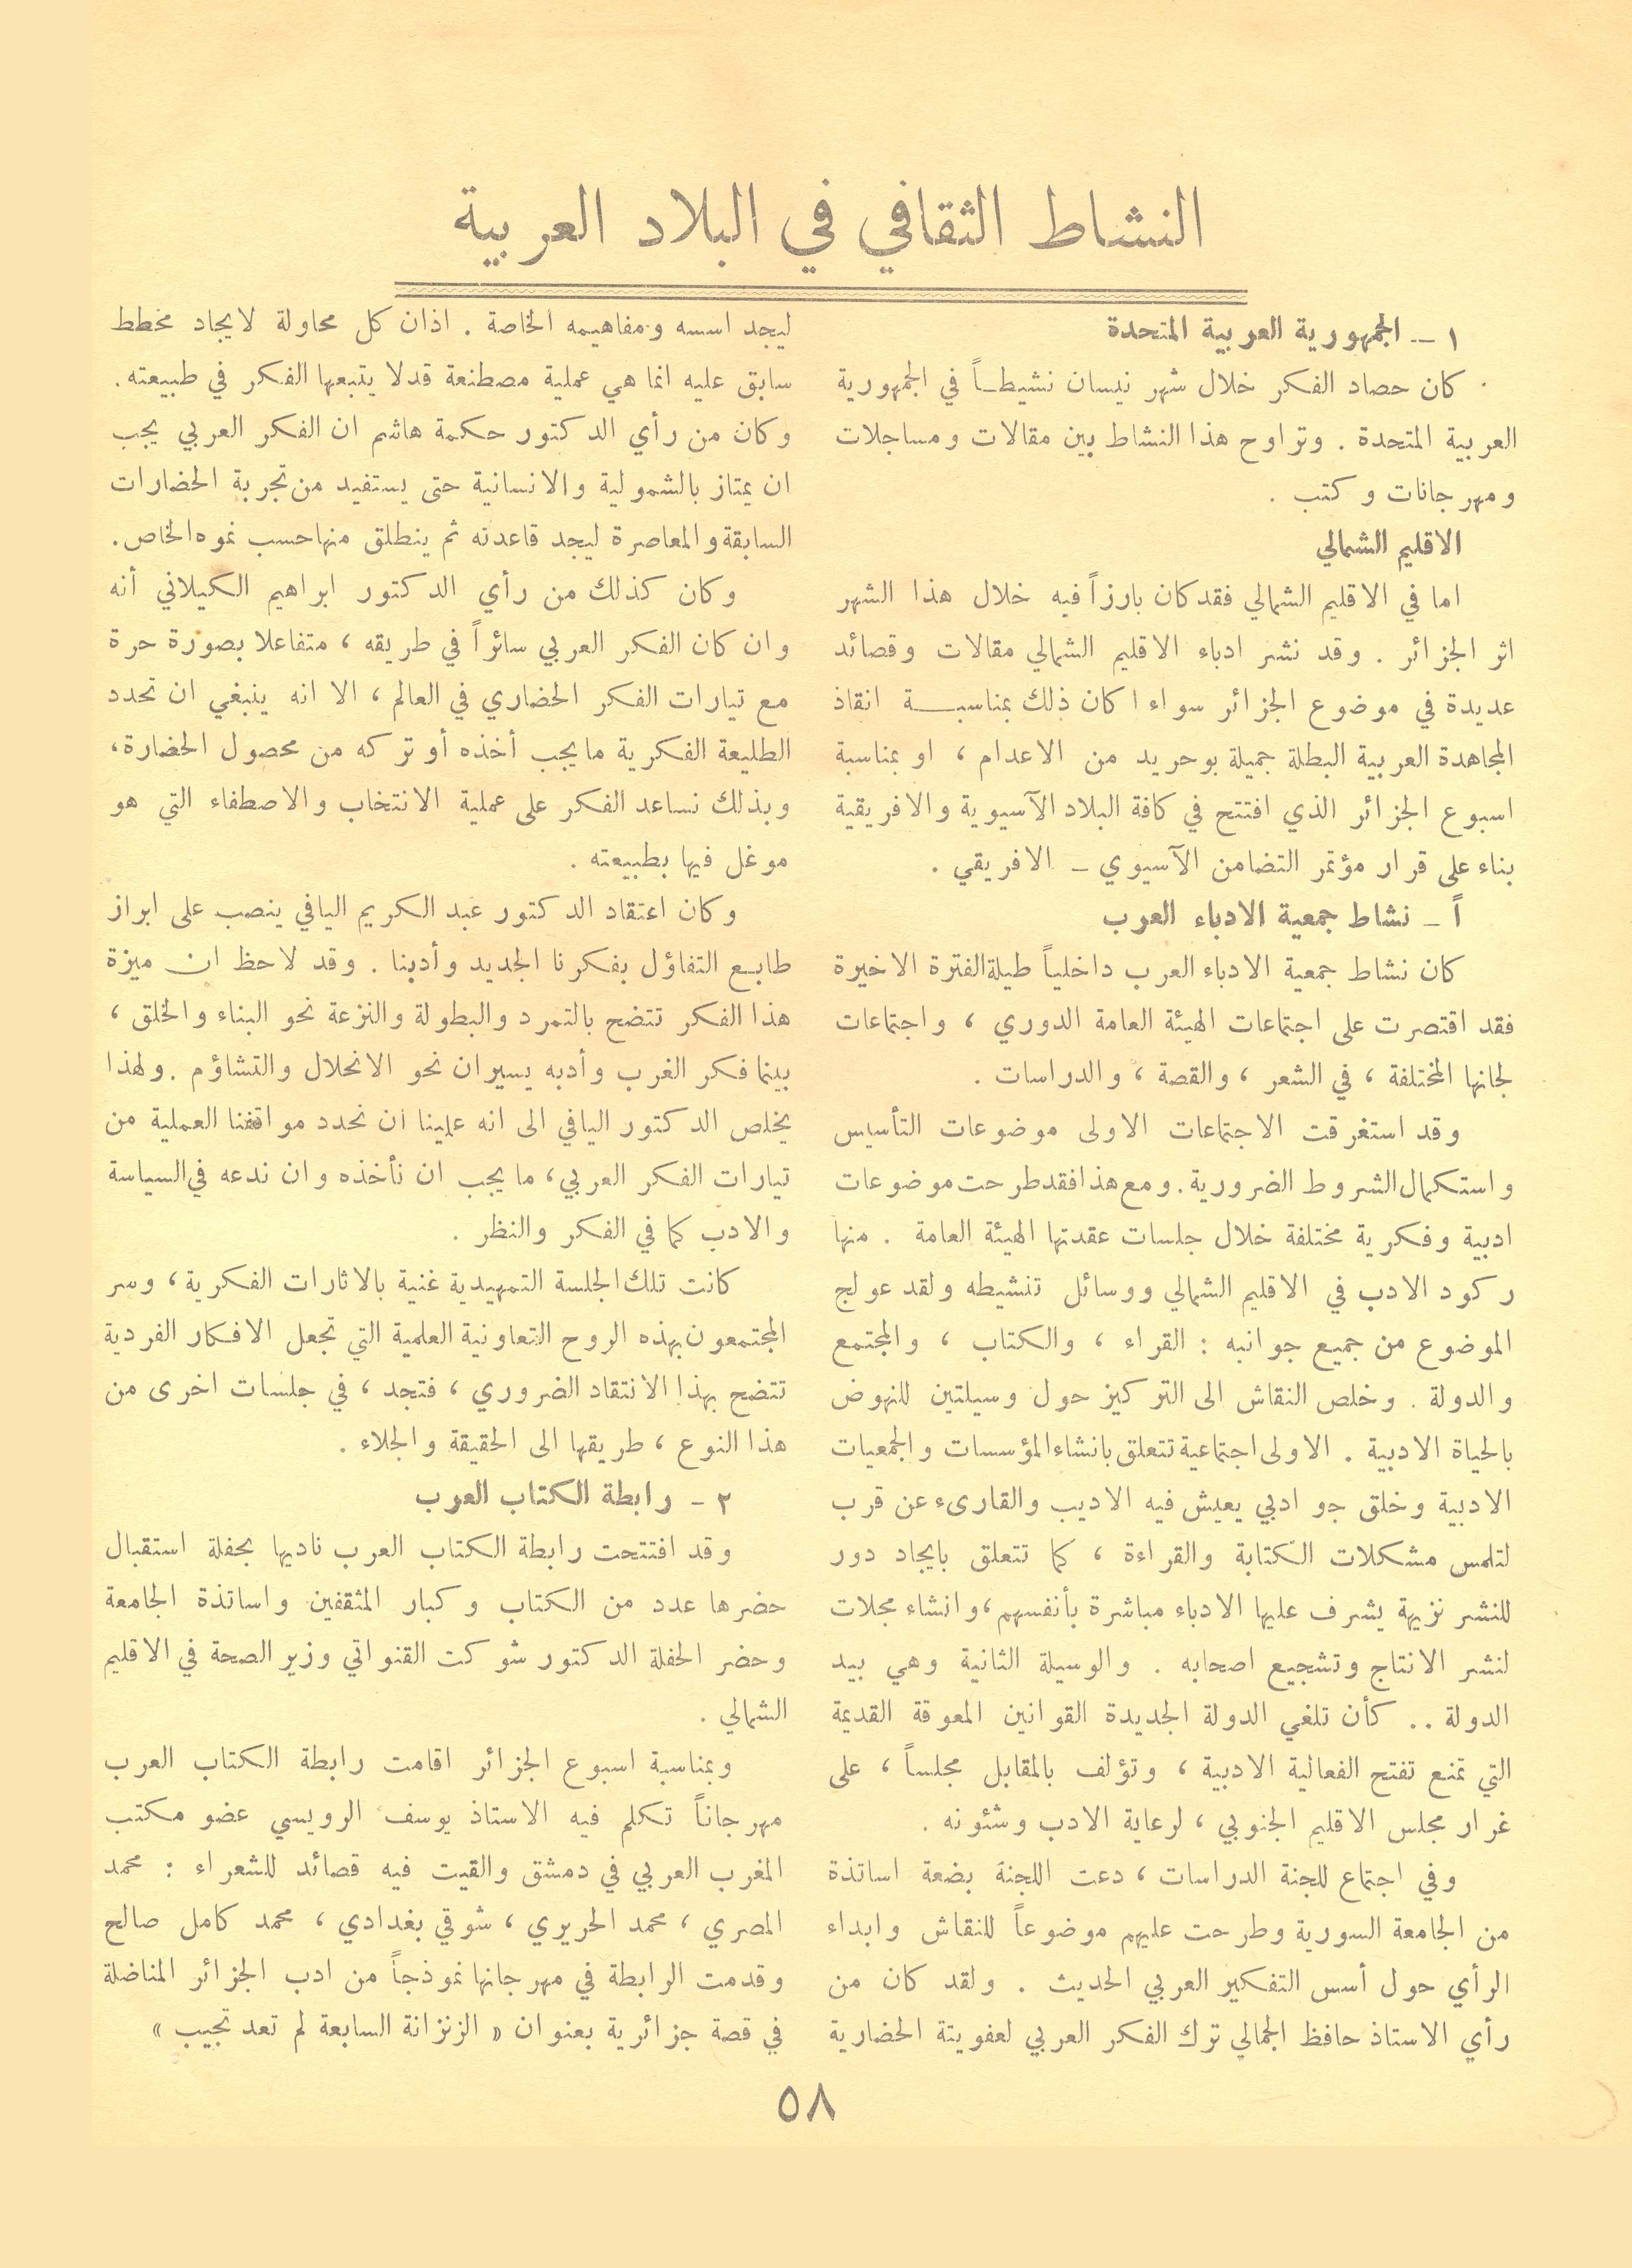 النشاط الثقافي في البلاد العربية
١ ــ الجمهورية العربية المتحدة
كان حصاد الفكر خلال شهر نيسان نشيطــاً في الجمهورية
العربية المتحدة . وتراوح هذا النشاط بين مقالات ومساجلات
ومهرجانات وكتب .
الاقليم الشمالي
اما في الاقليم الشمالي فقد كان بارزاً فيه خلال هذا الشهر
اثر الجزائر . وقد نشر ادباء الاقليم الشمالي مقالات وقصائد
عديدة في موضوع الجزائر سواء اكان ذلك بمناسبــــة انقاذ
المجاهدة العربية البطلة جميلة بوحريد من الاعدام ، او بمناسبة
اسبوع الجزائر الذي افتتح في كافة البلاد الآسيوية والافريقية
بناء على قرار مؤتمر التضامن الآسيوي ـ الافريقي .
اً ـ نشاط جمعية الادباء العرب
كان نشاط جمعية الادباء العرب داخلياً طيلة الفترة الاخيرة
فقد اقتصرت على اجتماعات الهيئة العامة الدوري ، واجتماعات
لجانها المختلفة ، في الشعر ، والقصة ، والدراسات .
وقد استغرقت الاجتماعات الاولى موضوعات التأسيس
واستكمال الشروط الضرورية . ومع هذا فقد طرحت موضوعات
ادبية وفكرية مختلفة خلال جلسات عقدتها الهيئة العامة . منها
ركود الادب في الاقليم الشمالي ووسائل تنشيطه ولقد عولج
الموضوع من جميع جوانبه : القراء ، والكتاب ، والمجتمع
والدولة . وخلص النقاش الى التركيز حول وسيلتين للنهوض
بالحياة الادبية . الاولى اجتماعية تتعلق بانشاء المؤسسات والجمعيات
الادبية وخلق جو ادبي يعيش فيه الاديب والقارىء عن قرب
لتلمس مشكلات الكتابة والقراءة ، كما تتعلق بايجاد دور
للنشر نزيهة يشرف عليها الادباء مباشرة بأنفسهم ، وانشاء مجلات
لنشر الانتاج وتشجيع اصحابه . والوسيلة الثانية وهي بيد
الدولة .. كأن تلغي الدولة الجديدة القوانين المعوقة القديمة
التي تمنع تفتح الفعالية الادبية ، وتؤلف بالمقابل مجلساً ، على
غرار مجلس الاقليم الجنوبي ، لرعاية الادب وشئونه .
وفي اجتماع للجنة الدراسات ، دعت اللجنة بضعة اساتذة
من الجامعة السورية وطرحت عليهم موضوعاً للنقاش وابداء
الرأي حول أسس التفكير العربي الحديث . ولقد كان من
رأي الاستاذ حافظ الجمالي ترك الفكر العربي لعفويتة الحضارية
ليجد اسسه ومفاهيمه الخاصة . اذان كل محاولة لايجاد مخطط
سابق عليه انما هي عملية مصطنعة قد لا يتبعها الفكر في طبيعته .
وكان من رأي الدكتور حكمة هاشم ان الفكر العربي يجب
ان يمتاز بالشمولية والانسانية حتى يستفيد من تجربة الحضارات
السابقة والمعاصرة ليجد قاعدته ثم ينطلق منها حسب نموه الخاص .
وكان كذلك من رأي الدكتور ابراهيم الكيلاني أنه
وان كان الفكر العربي سائراً في طريقه ، متفاعلا بصورة حرة
مع تيارات الفكر الحضاري في العالم ، الا انه ينبغي ان تحدد
الطليعة الفكرية ما يجب أخذه أو تركه من محصول الحضارة ،
وبذلك نساعد الفكر على عملية الانتخاب والاصطفاء التي هو
موغل فيها بطبيعته .
وكان اعتقاد الدكتور عبد الكريم اليافي ينصب على ابراز
طابع التفاؤل بفكرنا الجديد وأدبنا . وقد لاحظ ان ميزة
هذا الفكر تتضح بالتمرد والبطولة والنزعة نحو البناء والخلق ،
بينما فكر الغرب وأدبه يسيران نحو الانحلال والتشاؤم . ولهذا
يخلص الدكتور اليافي الى انه علينا ان نحدد مواقفنا العملية من
تيارات الفكر العربي ، ما يجب ان نأخذه وان ندعه في السياسة
والادب كما في الفكر والنظر .
كانت تلك الجلسة التمهيدية غنية بالاثارات الفكرية ، وسر
المجتمعون بهذه الروح التعاونية العلمية التي تجعل الافكار الفردية
تتضح بهذا الانتقاد الضروري ، فتجد ، في جلسات اخرى من
هذا النوع ، طريقها الى الحقيقة والجلاء .
٢ ـ رابطة الكتاب العرب
وقد افتتحت رابطة الكتاب العرب ناديها بحفلة استقبال
حضرها عدد من الكتاب وكبار المثقفين واساتذة الجامعة
وحضر الحفلة الدكتور شوكت القنواتي وزير الصحة في الاقليم
الشمالي .
وبمناسبة اسبوع الجزائر اقامت رابطة الكتاب العرب
مهرجاناً تكلم فيه الاستاذ يوسف الرويسي عضو مكتب
المغرب العربي في دمشق والقيت فيه قصائد للشعراء : محمد
المصري ، محمد الحريري ، شوقي بغدادي ، محمد كامل صالح
وقدمت الرابطة في مهرجانها نموذجاً من ادب الجزائر المناضلة
في قصة جزائرية بعنوان « الزنزانة السابعة لم تعد تجيب »
٥٨